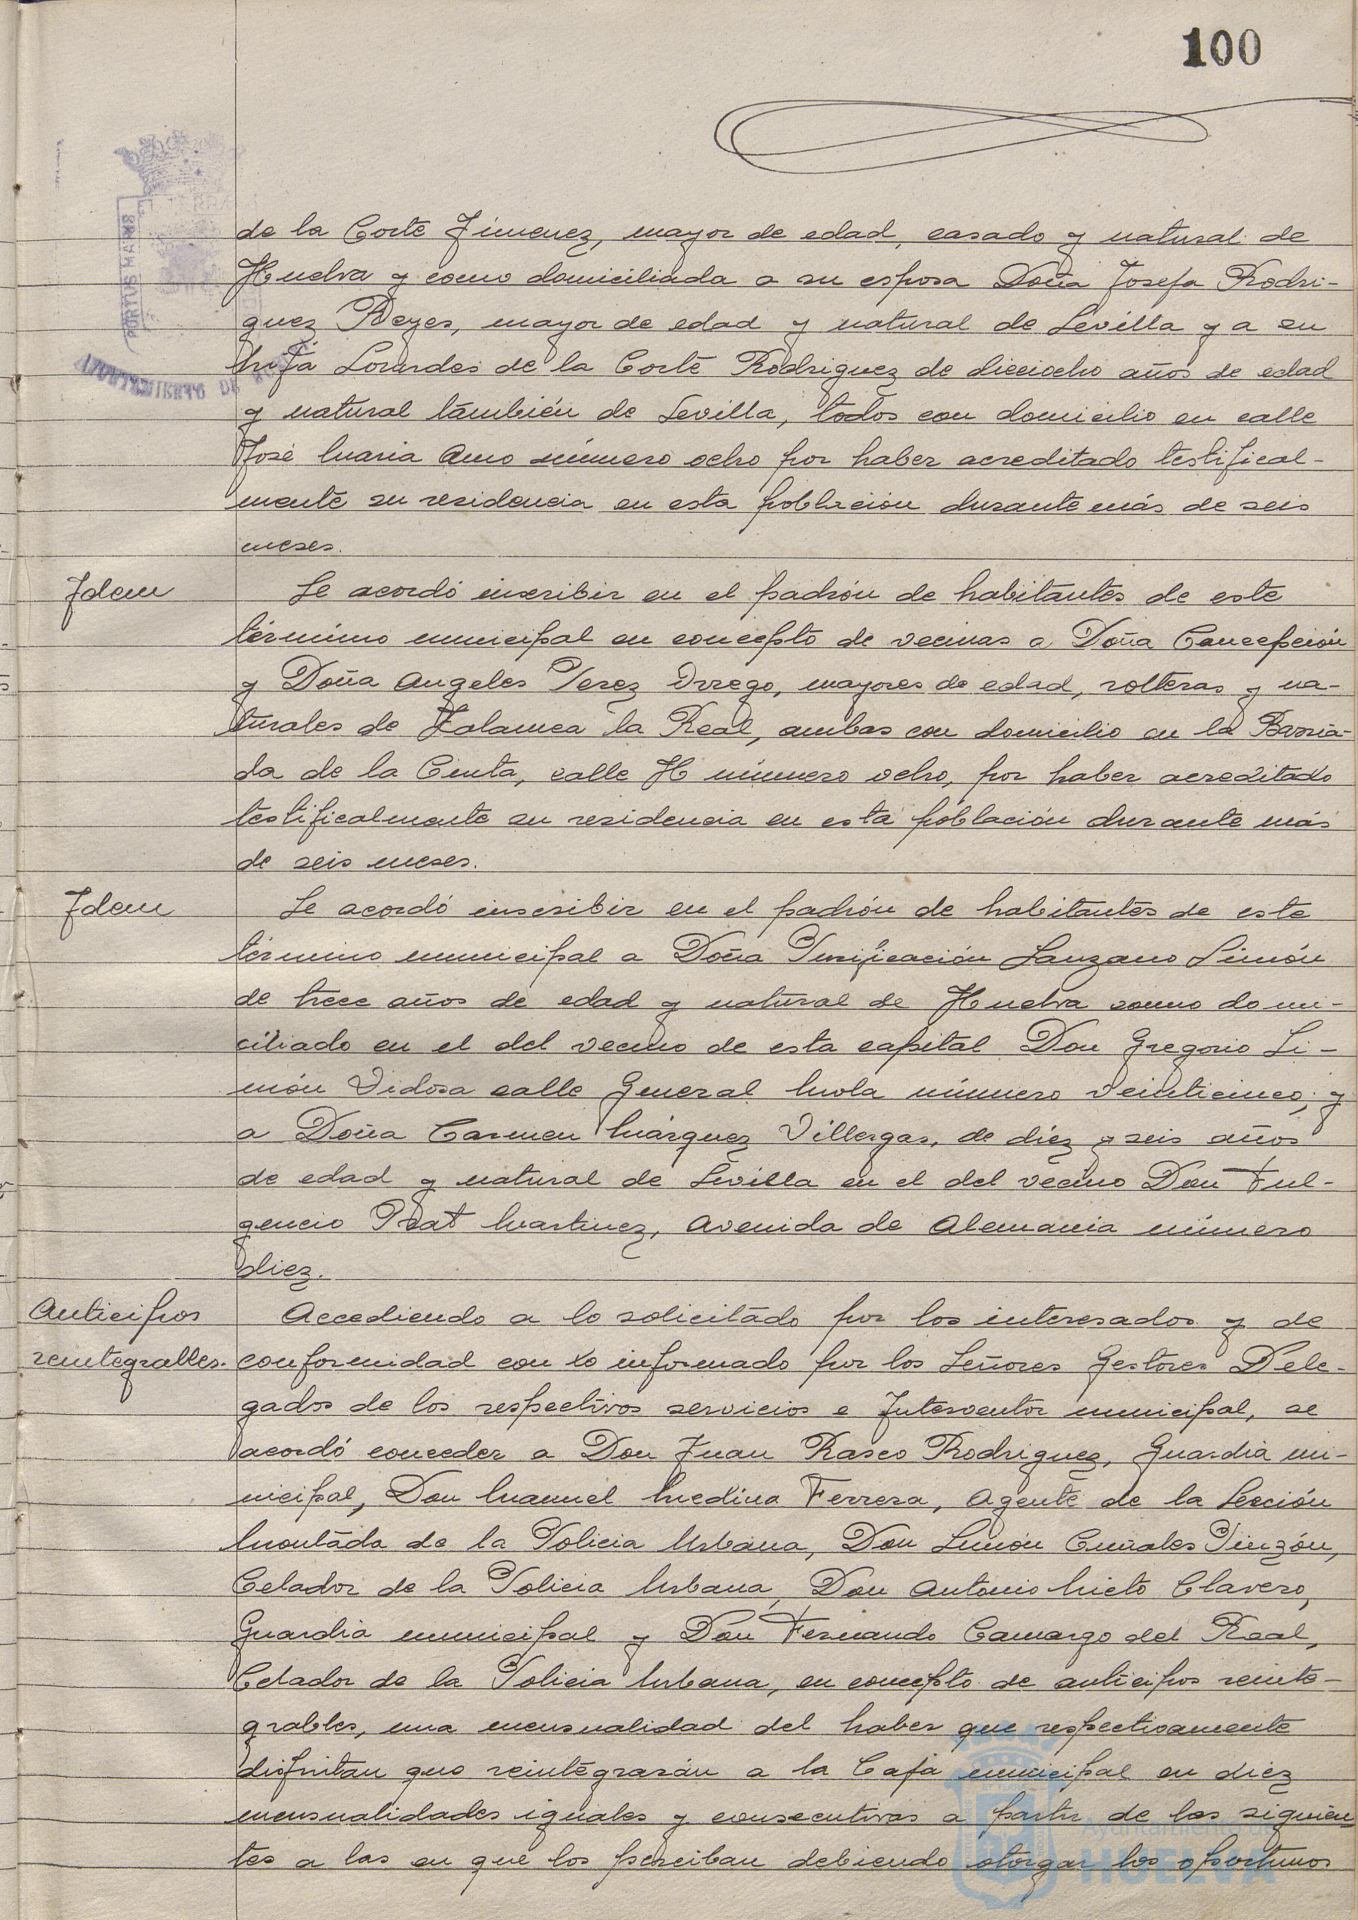 100
de la Corte Jimenez, mayor de edad, casado y natural de
Huelva y como domiciliada a su esposa Doña Josefa Rodri-
guez Reyes, mayor de edad y natural de Sevilla y a su
hija Lourdes de la Corte Rodriguez de dieciocho años de edad
y natural también de Sevilla, todos con domicilio en calle
José Maria Amo número ocho por haber acreditado testifical-
mente su residencia en esta población durante más de seis
meses.
Idem
Se acordó inscribir en el padrón de habitantes de este
término municipal en concepto de vecinas a Doña Concepción
y Doña Angeles Perez Orrego, mayores de edad, solteras y na-
turales de Zalamea la Real, ambas con domicilio en la Barria-
da de la Cinta, calle H número ocho, por haber acreditado
testificalmente su residencia en esta población durante más
de seis meses.
Idem
Se acordó inscribir en el padrón de habitantes de este
término municipal a Doña Purificación Lanzano Limón
de trece años de edad y natural de Huelva como domi-
ciliado en el del vecino de esta capital Don Gregorio Li-
món Vidosa calle General Mola número veinticinco, y
a Doña Carmen Márquez Villergas, de diez y seis años
de edad y natural de Sevilla en el del vecino Don Ful-
gencio Prat Martinez, Avenida de Alemania número
diez.
Anticipos
reintegrables.
Accediendo a lo solicitado por los interesados y de
conformidad con lo informado por los Señores Gestores Dele-
gados de los respectivos servicios e Interventor municipal, se
acordó conceder a Don Juan Rasco Rodriguez, Guardia mu-
nicipal, Don Manuel Medina Ferrera, Agente de la Sección
Montada de la Policia Urbana, Don Simón Pinzón,
Celador de la Policia Urbana, Don Antonio Nieto Clavero,
Guardia municipal y Don Fernando Camargo del Real,
Celador de la Policia Urbana, en concepto de anticipos reinte-
grables, una mensualidad del haber que respectivamente
disfrutan que reintegrarán a la Caja municipal en diez
mensualidades iguales y consecutivas a partir de las siguien-
tes a las en que los perciban debiendo otorgar los oportunos
PORTUS MARIS
AYUNTAMIENTO DE HUELVA
Ayuntamiento de
HUELVA